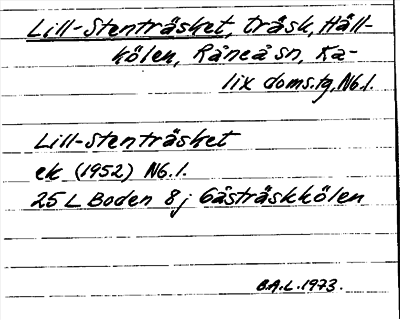 Lill-Stenträsket, träsk, Håll-
kölen, Råneå sn, Ka-
lix doms.tg, Nb.l.
Lill-Stenträsket
ek (1952) Nb.l.
25 L Boden 8 j Gåsträskkölen
B.A.L. 1973.